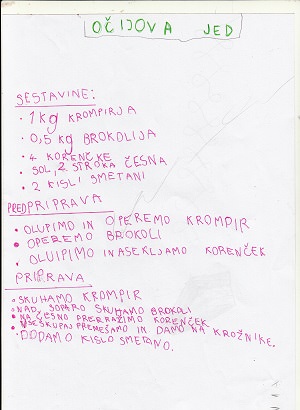 OČIJOVA JED
SESTAVINE:
• 1 kg KROMPIRJA
• 0,5 kg BROKOLIJA
• 4 KORENČKE
• SOL, 2 STROKA ČESNA
• 2 KISLI SMETANI
PREDPRIPRAVA
• OLUPIMO IN OPEREMO KROMPIR
• OPEREMO BROKOLI
• OLUIPIMO INASEKLJAMO KORENČEK
PRIPRAVA
• SKUHAMO KROMPIR
• NAD SOPARO SKUHAMO BROKOLI
• NA ČESNO PREPRAŽIMO KORENČEK
• VSESKUPAJ PREMEŠAMO IN DAMO NA KROŽNIKE.
• DODAMO KISLO SMETANO.